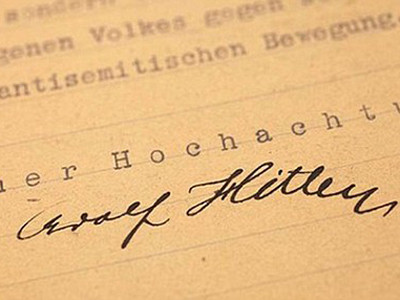 sondern
genen Volkes gegen
antisemitischen Bewegung.
ner Hochacht
Adolf Hitler